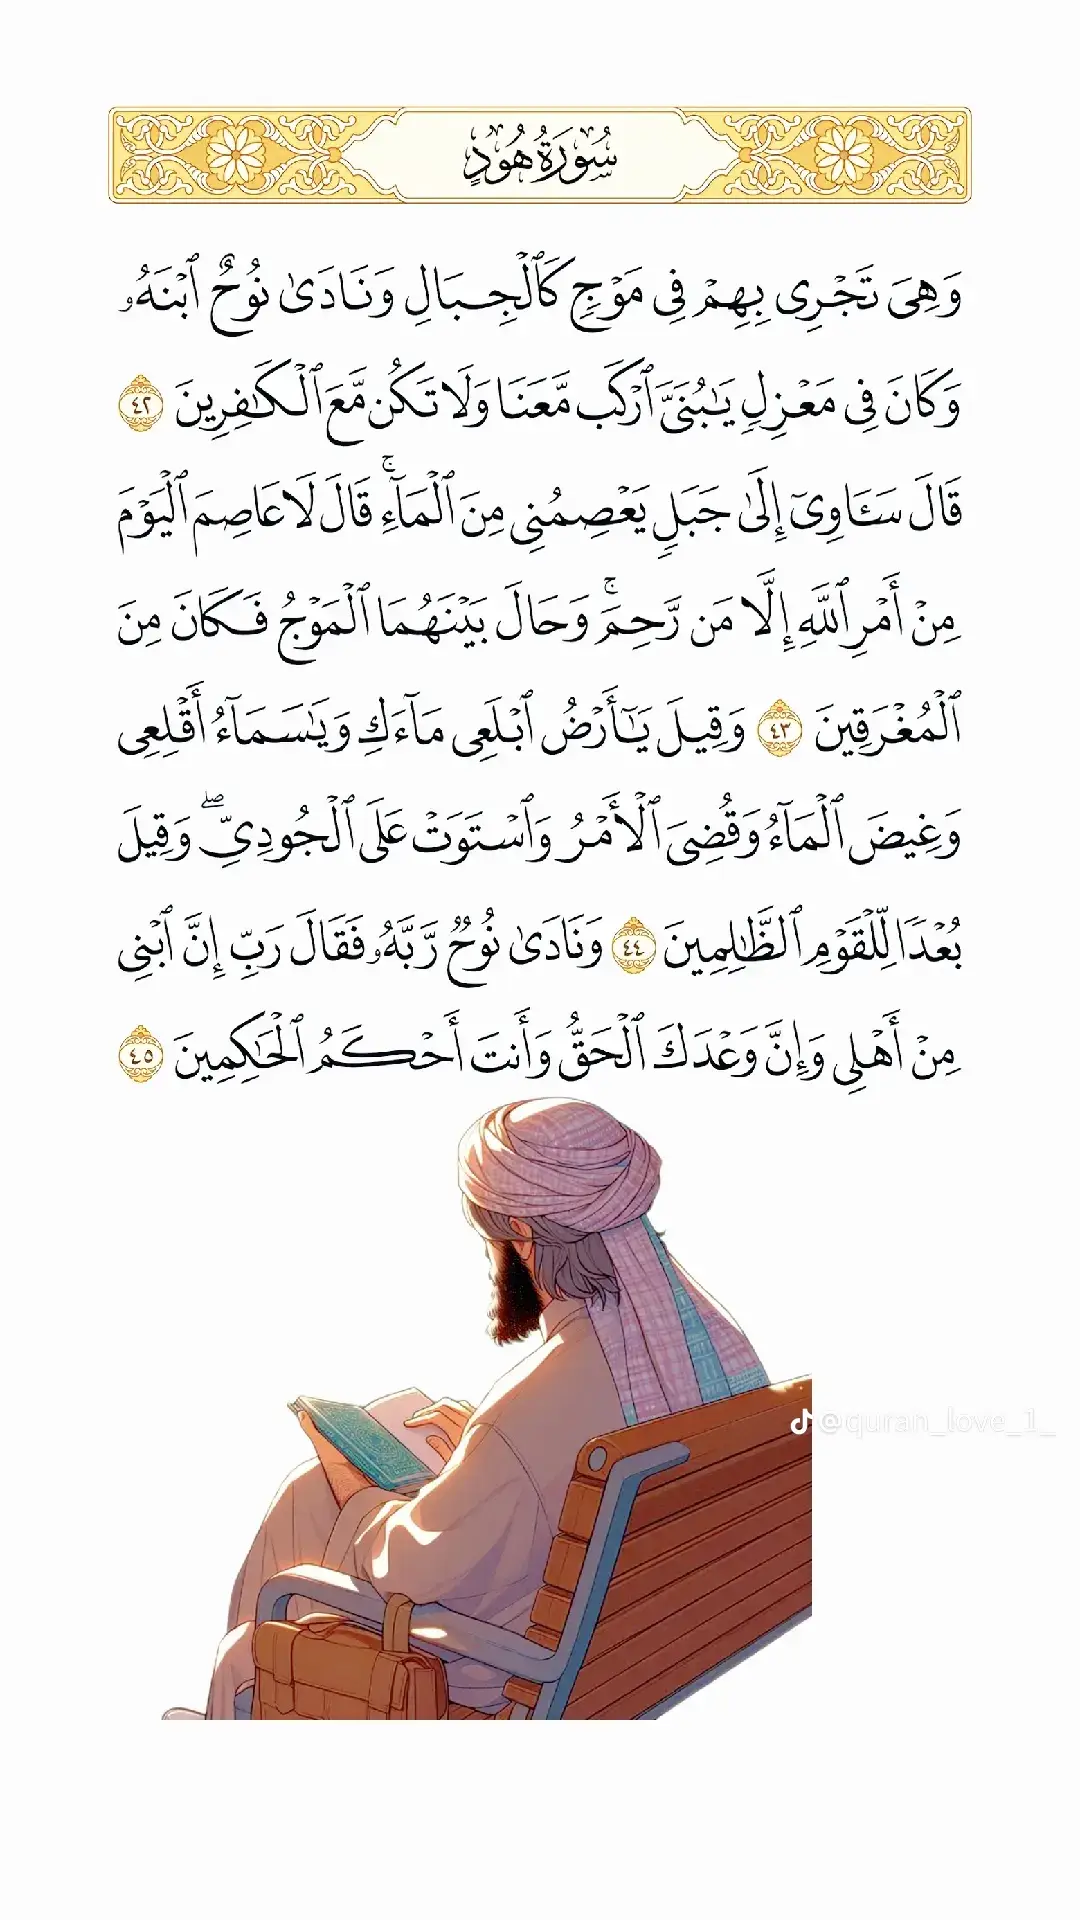 سُورَةُ هُودٍ
وَهِيَ تَجْرِي بِهِمْ فِي مَوْجٍ كَٱلْجِبَالِ وَنَادَىٰ نُوحٌ ٱبْنَهُۥ
وَكَانَ فِي مَعْزِلٍ يَٰبُنَيَّ ٱرْكَب مَّعَنَا وَلَا تَكُن مَّعَ ٱلْكَٰفِرِينَ ٤٢
قَالَ سَـَٔاوِيٓ إِلَىٰ جَبَلٍ يَعْصِمُنِي مِنَ ٱلْمَآءِۚ قَالَ لَا عَاصِمَ ٱلْيَوْمَ
مِنْ أَمْرِ ٱللَّهِ إِلَّا مَن رَّحِمَۚ وَحَالَ بَيْنَهُمَا ٱلْمَوْجُ فَكَانَ مِنَ
ٱلْمُغْرَقِينَ ٤٣ وَقِيلَ يَٰٓأَرْضُ ٱبْلَعِي مَآءَكِ وَيَٰسَمَآءُ أَقْلِعِي
وَغِيضَ ٱلْمَآءُ وَقُضِيَ ٱلْأَمْرُ وَٱسْتَوَتْ عَلَى ٱلْجُودِيِّۖ وَقِيلَ
بُعْدًا لِّلْقَوْمِ ٱلظَّٰلِمِينَ ٤٤ وَنَادَىٰ نُوحٌ رَّبَّهُۥ فَقَالَ رَبِّ إِنَّ ٱبْنِي
مِنْ أَهْلِي وَإِنَّ وَعْدَكَ ٱلْحَقُّ وَأَنتَ أَحْكَمُ ٱلْحَٰكِمِينَ ٤٥
@quran_love_1_